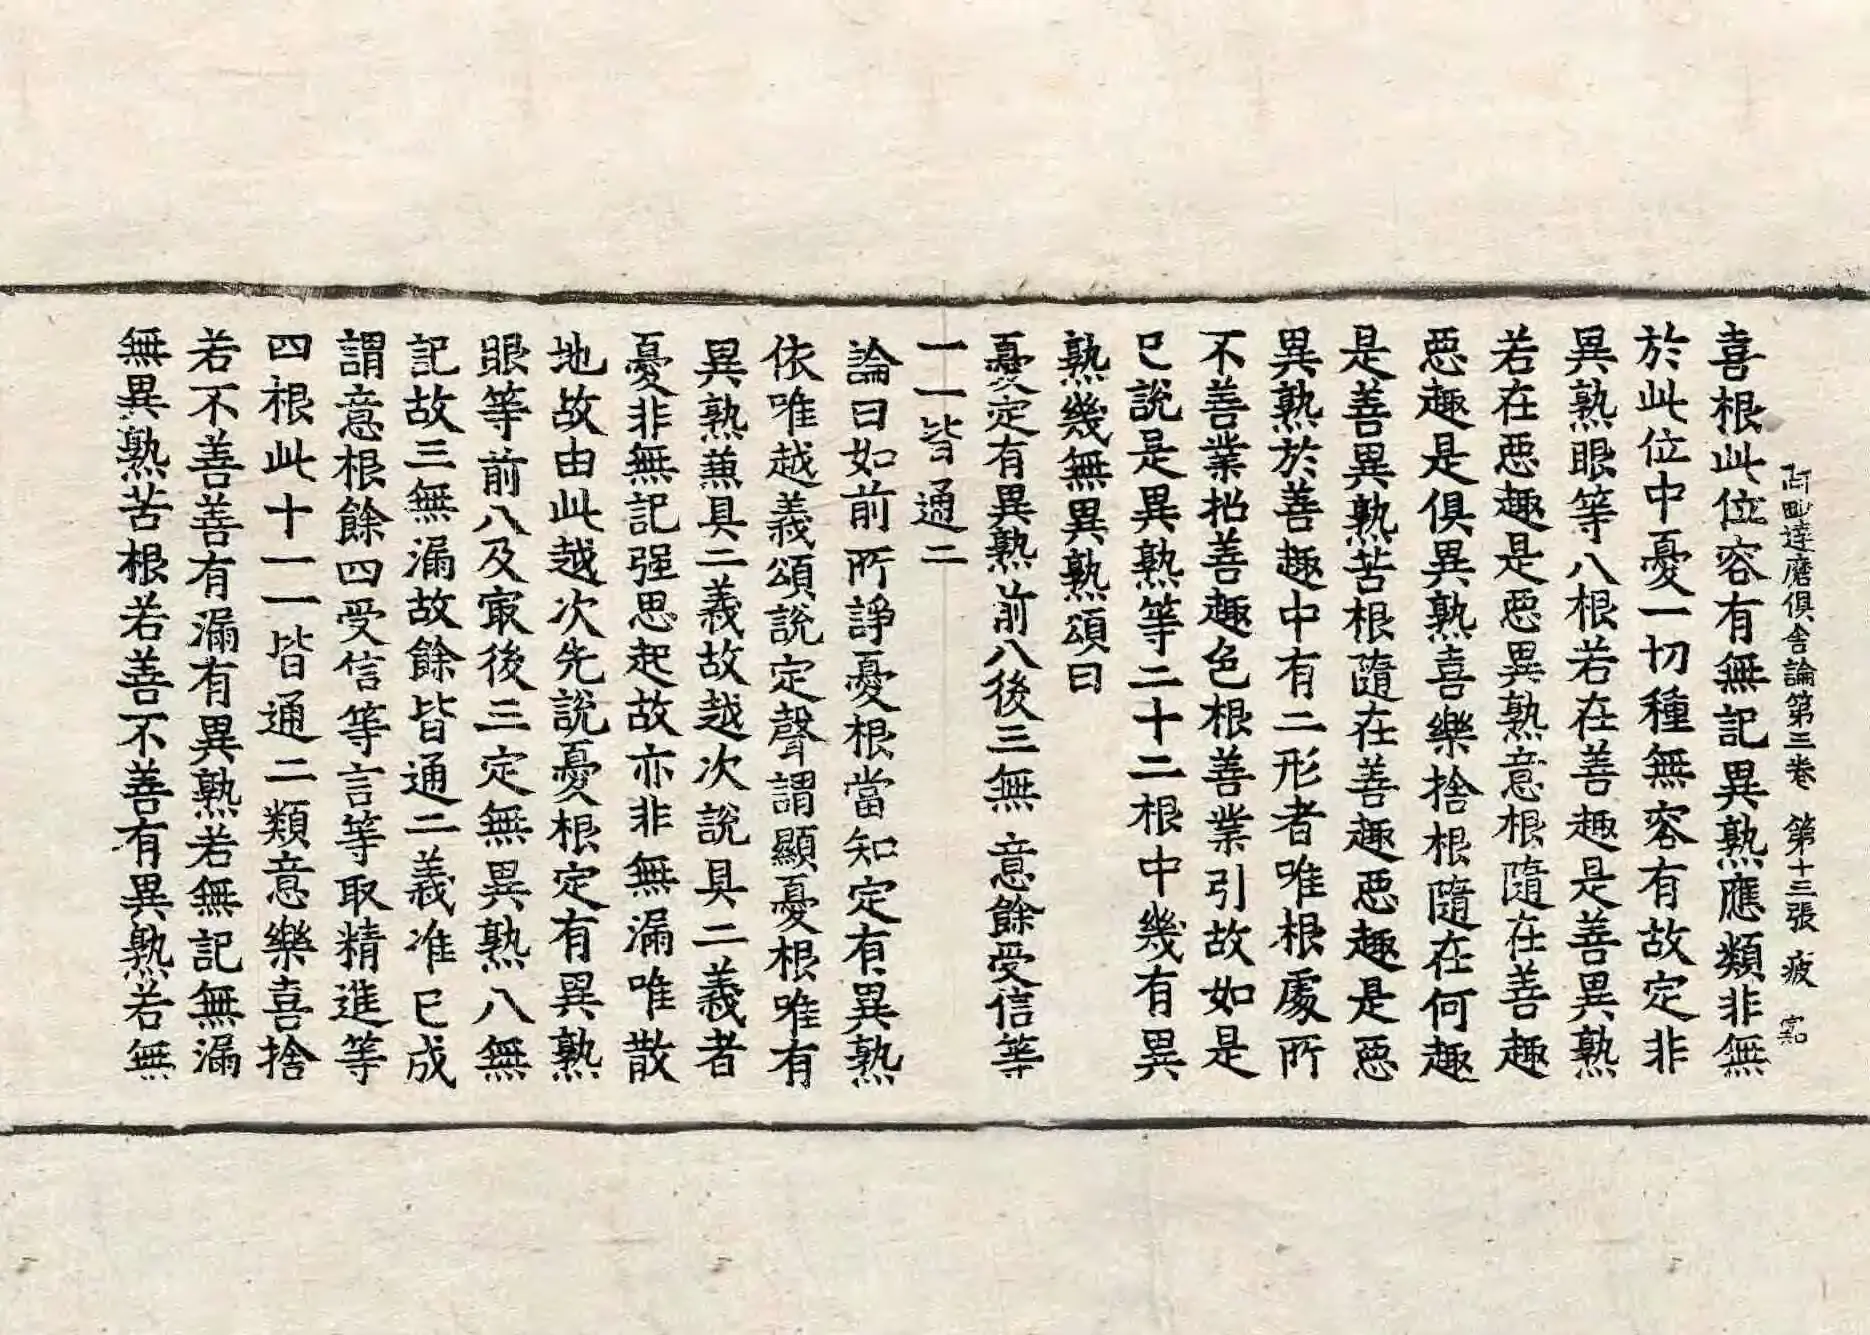 阿毗達磨俱舍論第三卷 第十三張 疲
喜根此位容有無記異熟應類非無
於此位中憂一切種無容有故定非
異熟眼等八根若在善趣是善異熟
若在惡趣是惡異熟意根隨在善趣
惡趣是俱異熟喜樂捨根隨在何趣
是善異熟苦根隨在善趣惡趣是惡
異熟於善趣中有二形者唯根處所
不善業招善趣色根善業引故如是
已說是異熟等二十二根中幾有異
熟幾無異熟頌曰
憂定有異熟前八後三無 意餘受信等
一一皆通二
論曰如前所諍憂根當知定有異熟
依唯越義頌說定聲謂顯憂根唯有
異熟兼具二義故越次說具二義者
憂非無記强思起故亦非無漏唯散
地故由此越次先說憂根定有異熟
眼等前八及寂後三定無異熟八無
記故三無漏故餘皆通二義准已成
謂意根餘四受信等言等取精進等
四根此十一一皆通二類意樂喜捨
若不善善有漏有異熟若無記無漏
無異熟苦根若善不善有異熟若無